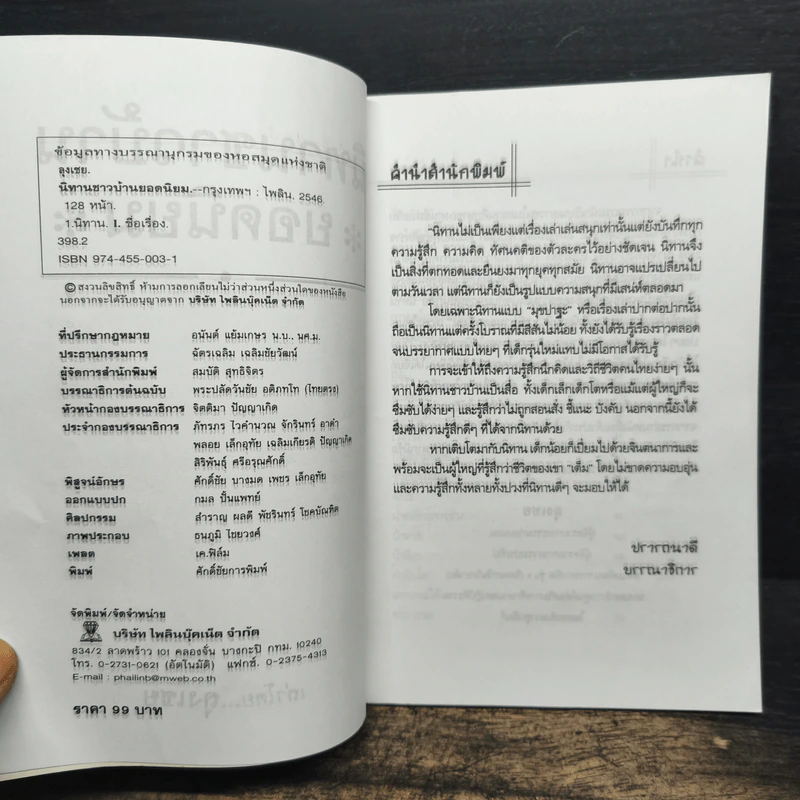 ข้อมูลทางบรรณานุกรมของหอสมุดแห่งชาติ
ลุงเชย.
นิทานชาวบ้านยอดนิยม.--กรุงเทพฯ : ไพลิน. 2546.
128 หน้า.
1.นิทาน. I. ชื่อเรื่อง.
398.2
ISBN 974-455-003-1
© สงวนลิขสิทธิ์ ห้ามการลอกเลียนไม่ว่าส่วนหนึ่งส่วนใดของหนังสือ
นอกจากจะได้รับอนุญาตจาก บริษัท ไพลินบุ๊คเน็ต จำกัด
ที่ปรึกษากฎหมาย อนันต์ แย้มเกษร น.บ., นศ.ม.
ประธานกรรมการ ฉัตรเฉลิม เฉลิมชัยวัฒน์
ผู้จัดการสำนักพิมพ์ สมบัติ สุทธิจิตร
บรรณาธิการต้นฉบับ พระปลัดวันชัย อติภทโท (ไทยตรง)
หัวหน้ากองบรรณาธิการ จิตติมา ปัญญาเกิด
ประจำกองบรรณาธิการ ภัทรภร ไวคำนวณ จักรินทร์ อาดำ
พลอย เล็กอุทัย เฉลิมเกียรติ ปัญญาเกิด
สิริพันธุ์ ศรีอรุณศักดิ์
พิสูจน์อักษร ศักดิ์ชัย บางมด เพชร เล็กอุทัย
ออกแบบปก กมล ปั้นแพทย์
ศิลปกรรม สำราญ ผลดี พัชรินทรุ์ โชคบัณฑิต
ภาพประกอบ ธนภูมิ ไชยวงศ์
เพลต เค.ฟิล์ม
พิมพ์ ศักดิ์ชัยการพิมพ์
จัดพิมพ์/จัดจำหน่าย
บริษัท ไพลินบุ๊คเน็ต จำกัด
834/2 ลาดพร้าว 101 คลองจั่น บางกะปิ กทม. 10240
โทร. 0-2731-0621 (อัตโนมัติ) แฟกซ์. 0-2375-4313
E-mail : phailinb@mweb.co.th
ราคา 99 บาท
คำนำสำนักพิมพ์
"นิทานไม่เป็นเพียงแต่เรื่องเล่าเล่นสนุกเท่านั้นแต่ยังบันทึกทุก
ความรู้สึก ความคิด ทัศนคติของตัวละครไว้อย่างชัดเจน นิทานจึง
เป็นสิ่งที่ตกทอดและยืนยงมาทุกยุคทุกสมัย นิทานอาจแปรเปลี่ยนไป
ตามวันเวลา แต่นิทานก็ยังเป็นรูปแบบความสนุกที่มีเสน่ห์ตลอดมา
โดยเฉพาะนิทานแบบ "มุขปาฐะ" หรือเรื่องเล่าปากต่อปากนั้น
ถือเป็นนิทานแต่ครั้งโบราณที่มีสีสันไม่น้อย ทั้งยังได้รับรู้เรื่องราวตลอด
จนบรรยากาศแบบไทยๆ ที่เด็กรุ่นใหม่แทบไม่มีโอกาสได้รับรู้
การจะเข้าให้ถึงความรู้สึกนึกคิดและวิถีชีวิตคนไทยง่ายๆ นั้น
หากใช้นิทานชาวบ้านเป็นสื่อ ทั้งเด็กเล็กเด็กโตหรือแม้แต่ผู้ใหญ่ก็จะ
ซึมซับได้ง่ายๆ และรู้สึกว่าไม่ถูกสอนสั่ง ชี้แนะ บังคับ นอกจากนี้ยังได้
ซึมซับความรู้สึกดีๆ ที่ได้จากนิทานด้วย
หากเติบโตมากับนิทาน เด็กน้อยก็เปี่ยมไปด้วยจินตนาการและ
พร้อมจะเป็นผู้ใหญ่ที่รู้สึกว่าชีวิตของเขา "เต็ม" โดยไม่ขาดความอบอุ่น
และความรู้สึกทั้งหลายทั้งปวงที่นิทานดีๆ จะมอบให้ได้
ปรารถนาดี
บรรณาธิการ